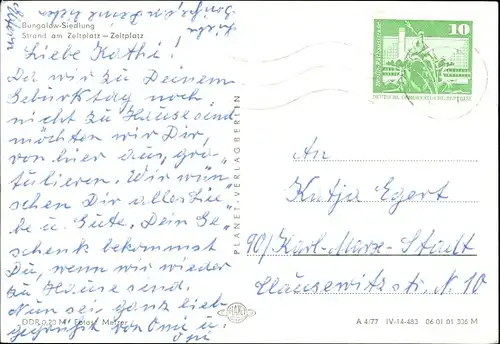 Bungalow-Siedlung
Strand am Zeltplatz – Zeltplatz
Liebe Kathi!
Da wir zu Deinem
Geburtstag noch
nicht zu Hause sind
möchten wir Dir,
von hier aus, gra-
tulieren. Wir wün-
schen Dir alles Lie-
be u. Gute. Dein Ge-
schenk bekommst
Du, wenn wir wieder
zu Hause sind.
Nun sei ganz lieb
gegrüßt von Omi u.
Opi
DDR 0,20 M Fotos: Melzer
PLANET-VERLAG BERLIN
10
DEUTSCHE DEMOKRATISCHE REPUBLIK
An
Katja Egert
90/Karl-Marx-Stadt
Clausewitzstr. N. 10
A 4/77 IV-14-483 06 01 01 336 M